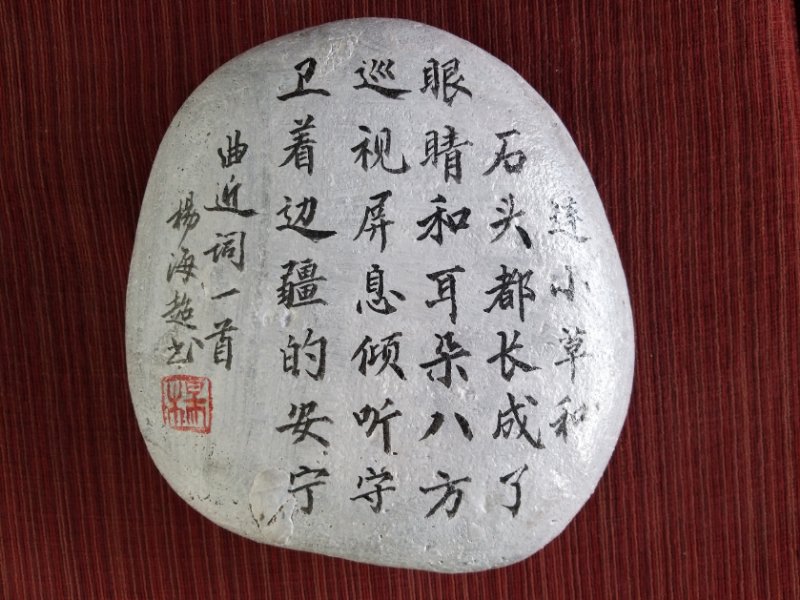 连小草和
石头都长成了
眼睛和耳朵八方
巡视屏息倾听守
卫着边疆的安宁
曲近词一首
楊海超书